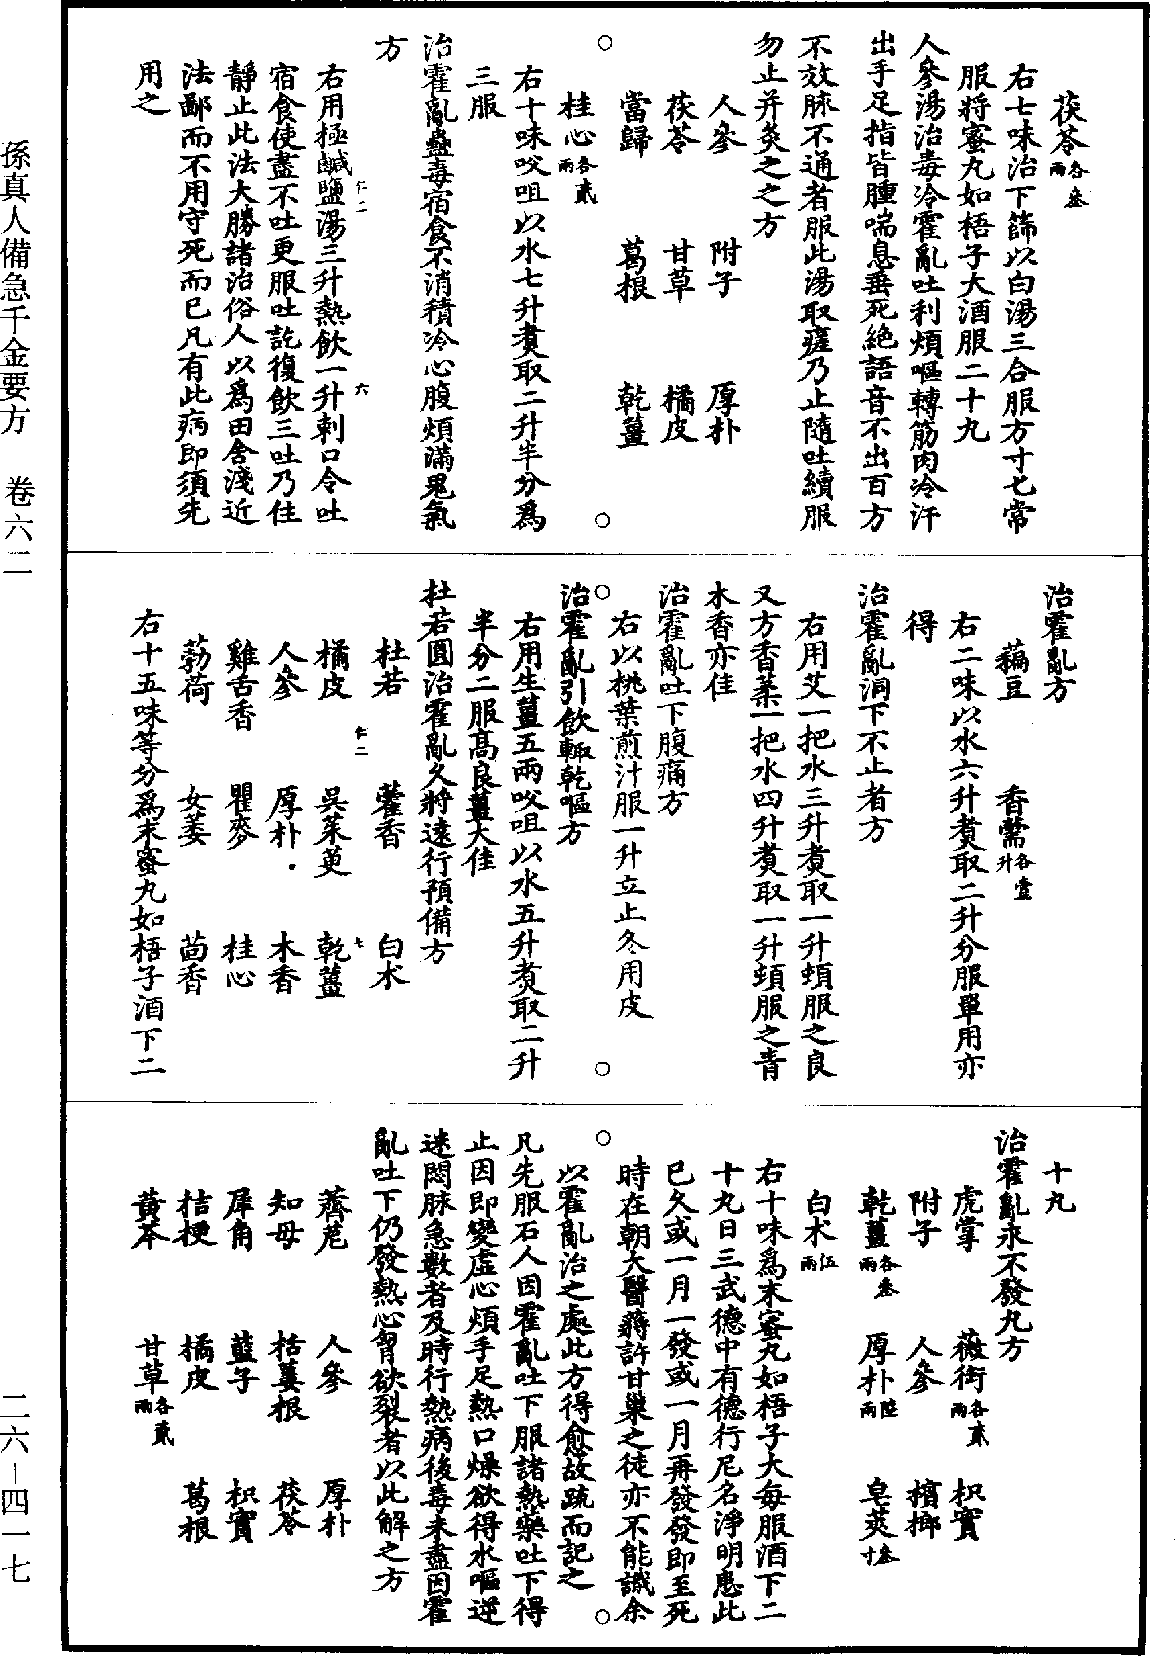 孫真人備急千金要方　卷六二　二六－四一七
茯苓各叁兩
右七味治下篩以白湯三合服方寸匕常
服將蜜丸如梧子大酒服二十丸
人參湯治毒冷霍亂吐利煩嘔轉筋肉冷汗
出手足指皆腫喘息垂死絶語音不出百方
不效脉不通者服此湯取瘥乃止隨吐續服
勿止并灸之之方
人參　附子　厚朴
茯苓　甘草　橘皮
當歸　葛根　乾薑
桂心各貳兩
右十味㕮咀以水七升煑取二升半分爲
三服
治霍亂蠱毒宿食不消積冷心腹煩滿鬼氣
方
右用極鹹鹽湯三升熱飲一升刺口令吐
宿食使盡不吐更服吐訖復飲三吐乃住
靜止此法大勝諸治俗人以爲田舍淺近
法鄙而不用守死而已凡有此病即須先
用之
治霍亂方
藊豆　香薷各壹升
右二味以水六升煑取二升分服單用亦
得
治霍亂洞下不止者方
右用艾一把水三升煑取一升頓服之良
又方香葇一把水四升煑取一升頓服之青
木香亦佳
治霍亂吐下腹痛方
右以桃葉煎汁服一升立止冬用皮
治霍亂引飲輒乾嘔方
右用生薑五兩㕮咀以水五升煑取二升
半分二服高良薑大佳
杜若圓治霍亂久將遠行預備方
杜若　藿香　白术
橘皮　吳茱萸　乾薑
人參　厚朴　木香
雞舌香　瞿麥　桂心
葧荷　女萎　茴香
右十五味等分爲末蜜丸如梧子酒下二
十丸
治霍亂永不發丸方
虎掌　薇銜各貳兩　枳實
附子　人參　檳榔
乾薑各叁兩　厚朴陸兩　皂莢叁寸
白术伍兩
右十味爲末蜜丸如梧子大每服酒下二
十丸日三武德中有德行尼名淨明患此
已久或一月一發或一月再發發即至死
時在朝大醫蔣許甘巢之徒亦不能識余
以霍亂治之處此方得愈故疏而記之
凡先服石人因霍亂吐下服諸熱藥吐下得
止因即變虛心煩手足熱口燥欲得水嘔逆
迷悶脉急數者及時行熱病後毒未盡因霍
亂吐下仍發熱心胷欲裂者以此解之方
薺苨　人參　厚朴
知母　栝蔞根　茯苓
犀角　藍子　枳實
桔梗　橘皮　葛根
黃芩　甘草各貳兩